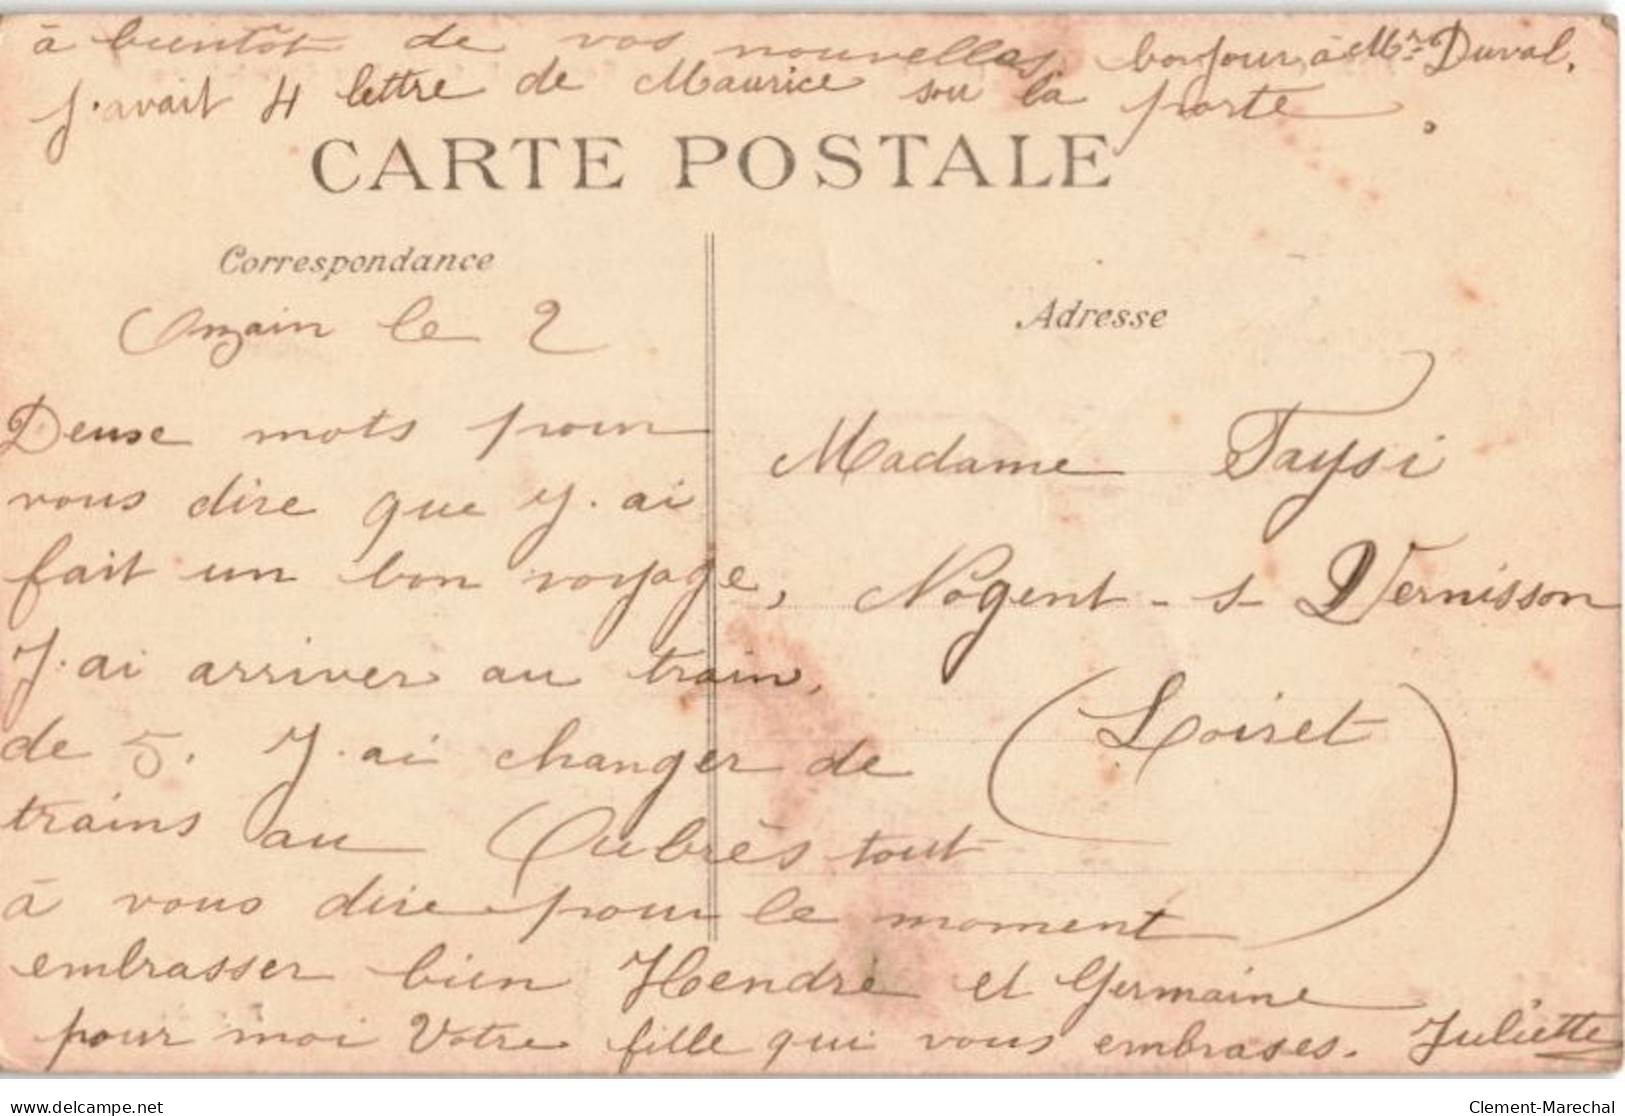 à bientôt de vos nouvelles, bonjour à Mr Duval.
J'avait 4 lettre de Maurice sou la porte.
CARTE POSTALE
Correspondance
Onzain le 2
Deuse mots pour
vous dire que J'ai
fait un bon voyage,
J'ai arriver au train,
de 5. J'ai changer de
trains au Aubrès tout
à vous dire pour le moment
embrasser bien Hendré et Germaine
pour moi Votre fille qui vous embrases. Juliette
Adresse
Madame Taysi
Nogent-s-Vernisson
(Loiret)
delcampe.net
Clement-Marechal